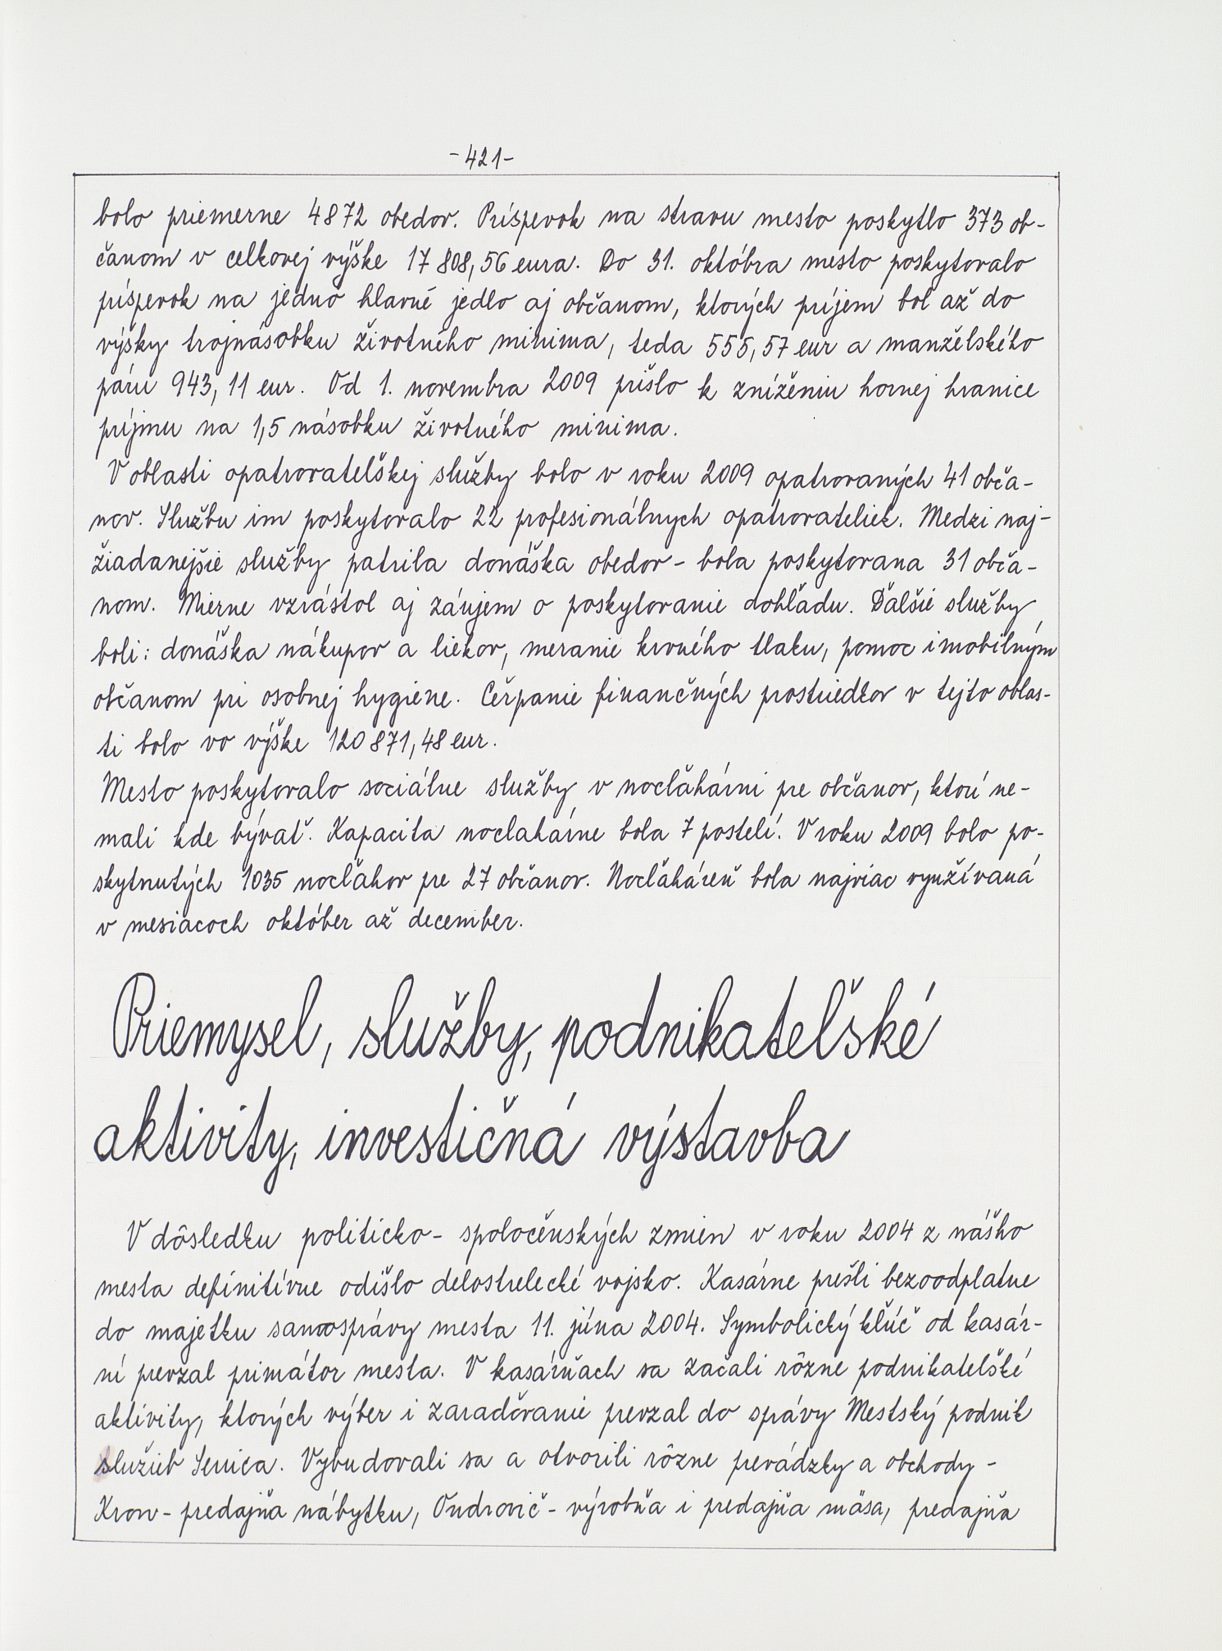 -421-
bolo priemerne 4872 obedov. Príspevok na stravu mesto poskytlo 373 ob-
čanom v celkovej výške 17 808,56 eura. Do 31. októbra mesto poskytovalo
príspevok na jedno hlavné jedlo aj občanom, ktorých príjem bol až do
výšky trojnásobku životného minima, teda 555,57 eur a manželského
páru 943,11 eur. Od 1. novembra 2009 prišlo k zníženiu hornej hranice
príjmu na 1,5 násobku životného minima.
V oblasti opatrovateľskej služby bolo v roku 2009 opatrovaných 41 obča-
nov. Službu im poskytovalo 22 profesionálnych opatrovateliek. Medzi naj-
žiadanejšie služby patrila donáška obedov - bola poskytovana 31 obča-
nom. Mierne vzrástol aj záujem o poskytovanie dohľadu. Ďalšie služby
boli: donáška nákupov a liekov, meranie krvného tlaku, pomoc imobilným
občanom pri osobnej hygiene. Čerpanie finančných prostriedkov v tejto oblas-
ti bolo vo výške 120 871,48 eur.
Mesto poskytovalo sociálne služby v nocľahárni pre občanov, ktorí ne-
mali kde bývať. Kapacita noclahárne bola 7 postelí. V roku 2009 bolo po-
skytnutých 1035 nocľahov pre 27 občanov. Nocľaháreň bola najviac využívaná
v mesiacoch október až december.
Priemysel, služby, podnikateľské
aktivity, investičná výstavba
V dôsledku politicko - spoločenských zmien v roku 2004 z nášho
mesta definitívne odišlo delostrelecké vojsko. Kasárne prešli bezoodplatne
do majetku samosprávy mesta 11. júna 2004. Symbolický kľúč od kasár-
ní prevzal primátor mesta. V kasárňach sa začali rôzne podnikateľské
aktivity, ktorých výber i zaraďovanie prevzal do správy Mestský podnik
služieb Senica. Vybudovali sa a otvorili rôzne prevádzky a obchody -
Kron - predajňa nábytku, Ondrovič - výrobňa i predajňa mäsa, predajňa